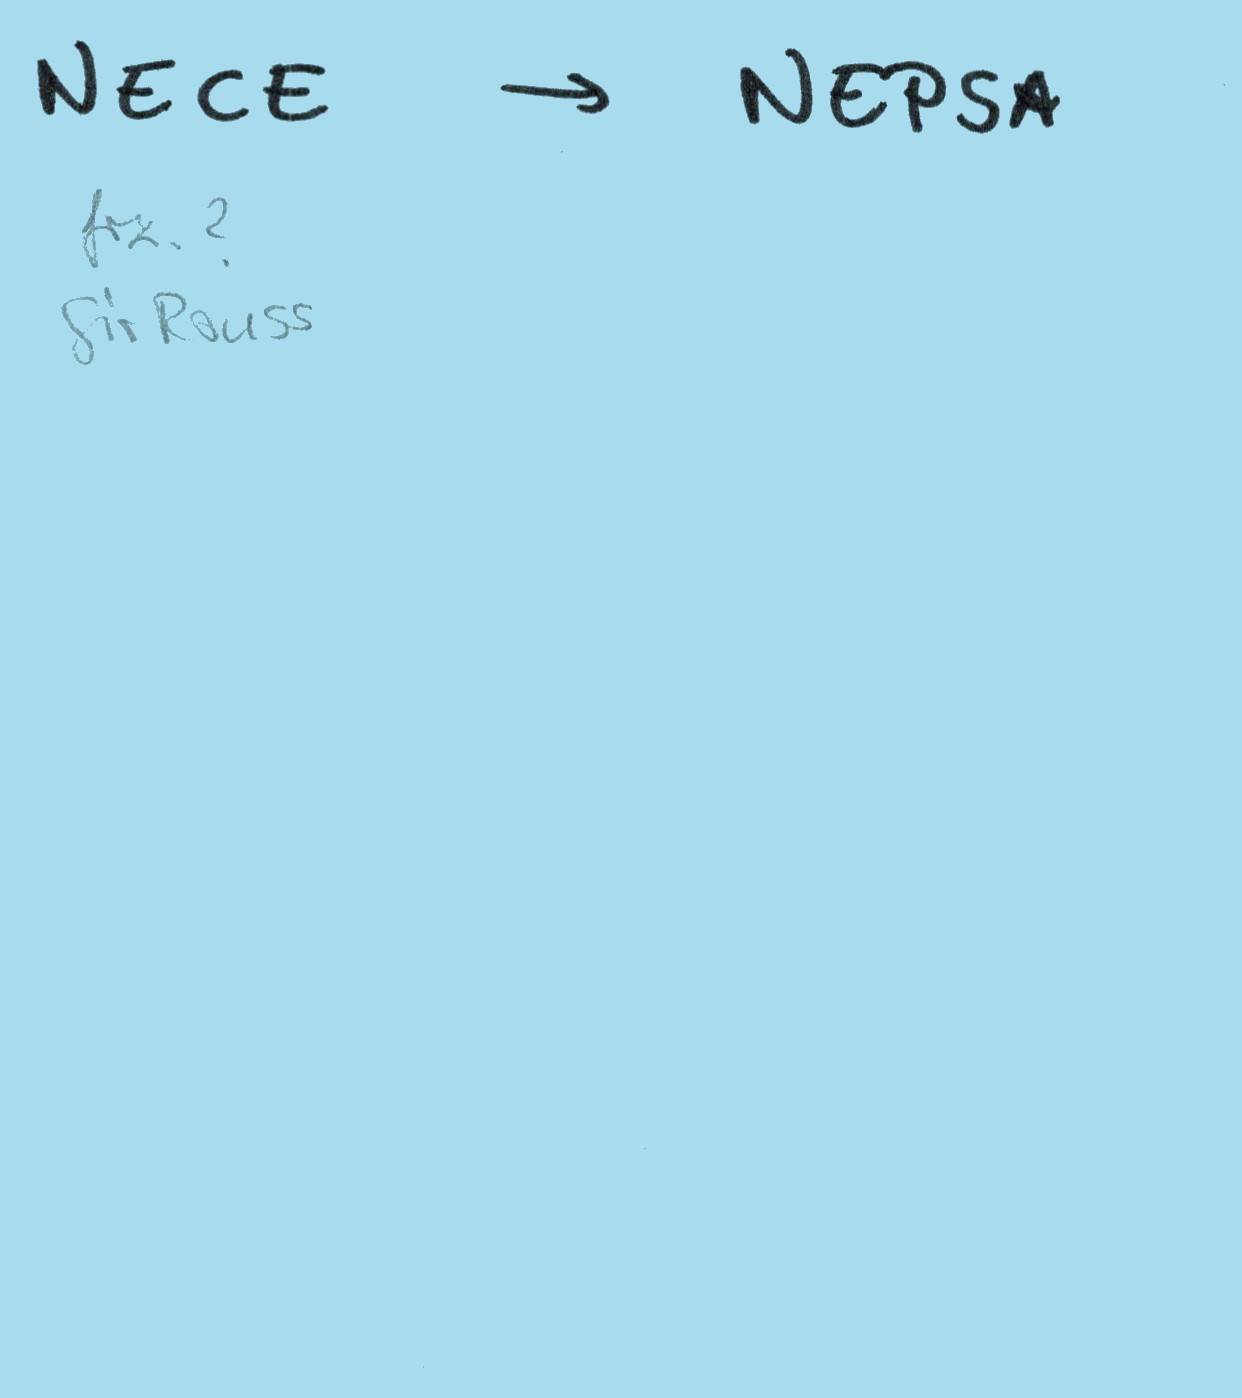 NECE → NEPSA
frz. ?
Sir Rauss